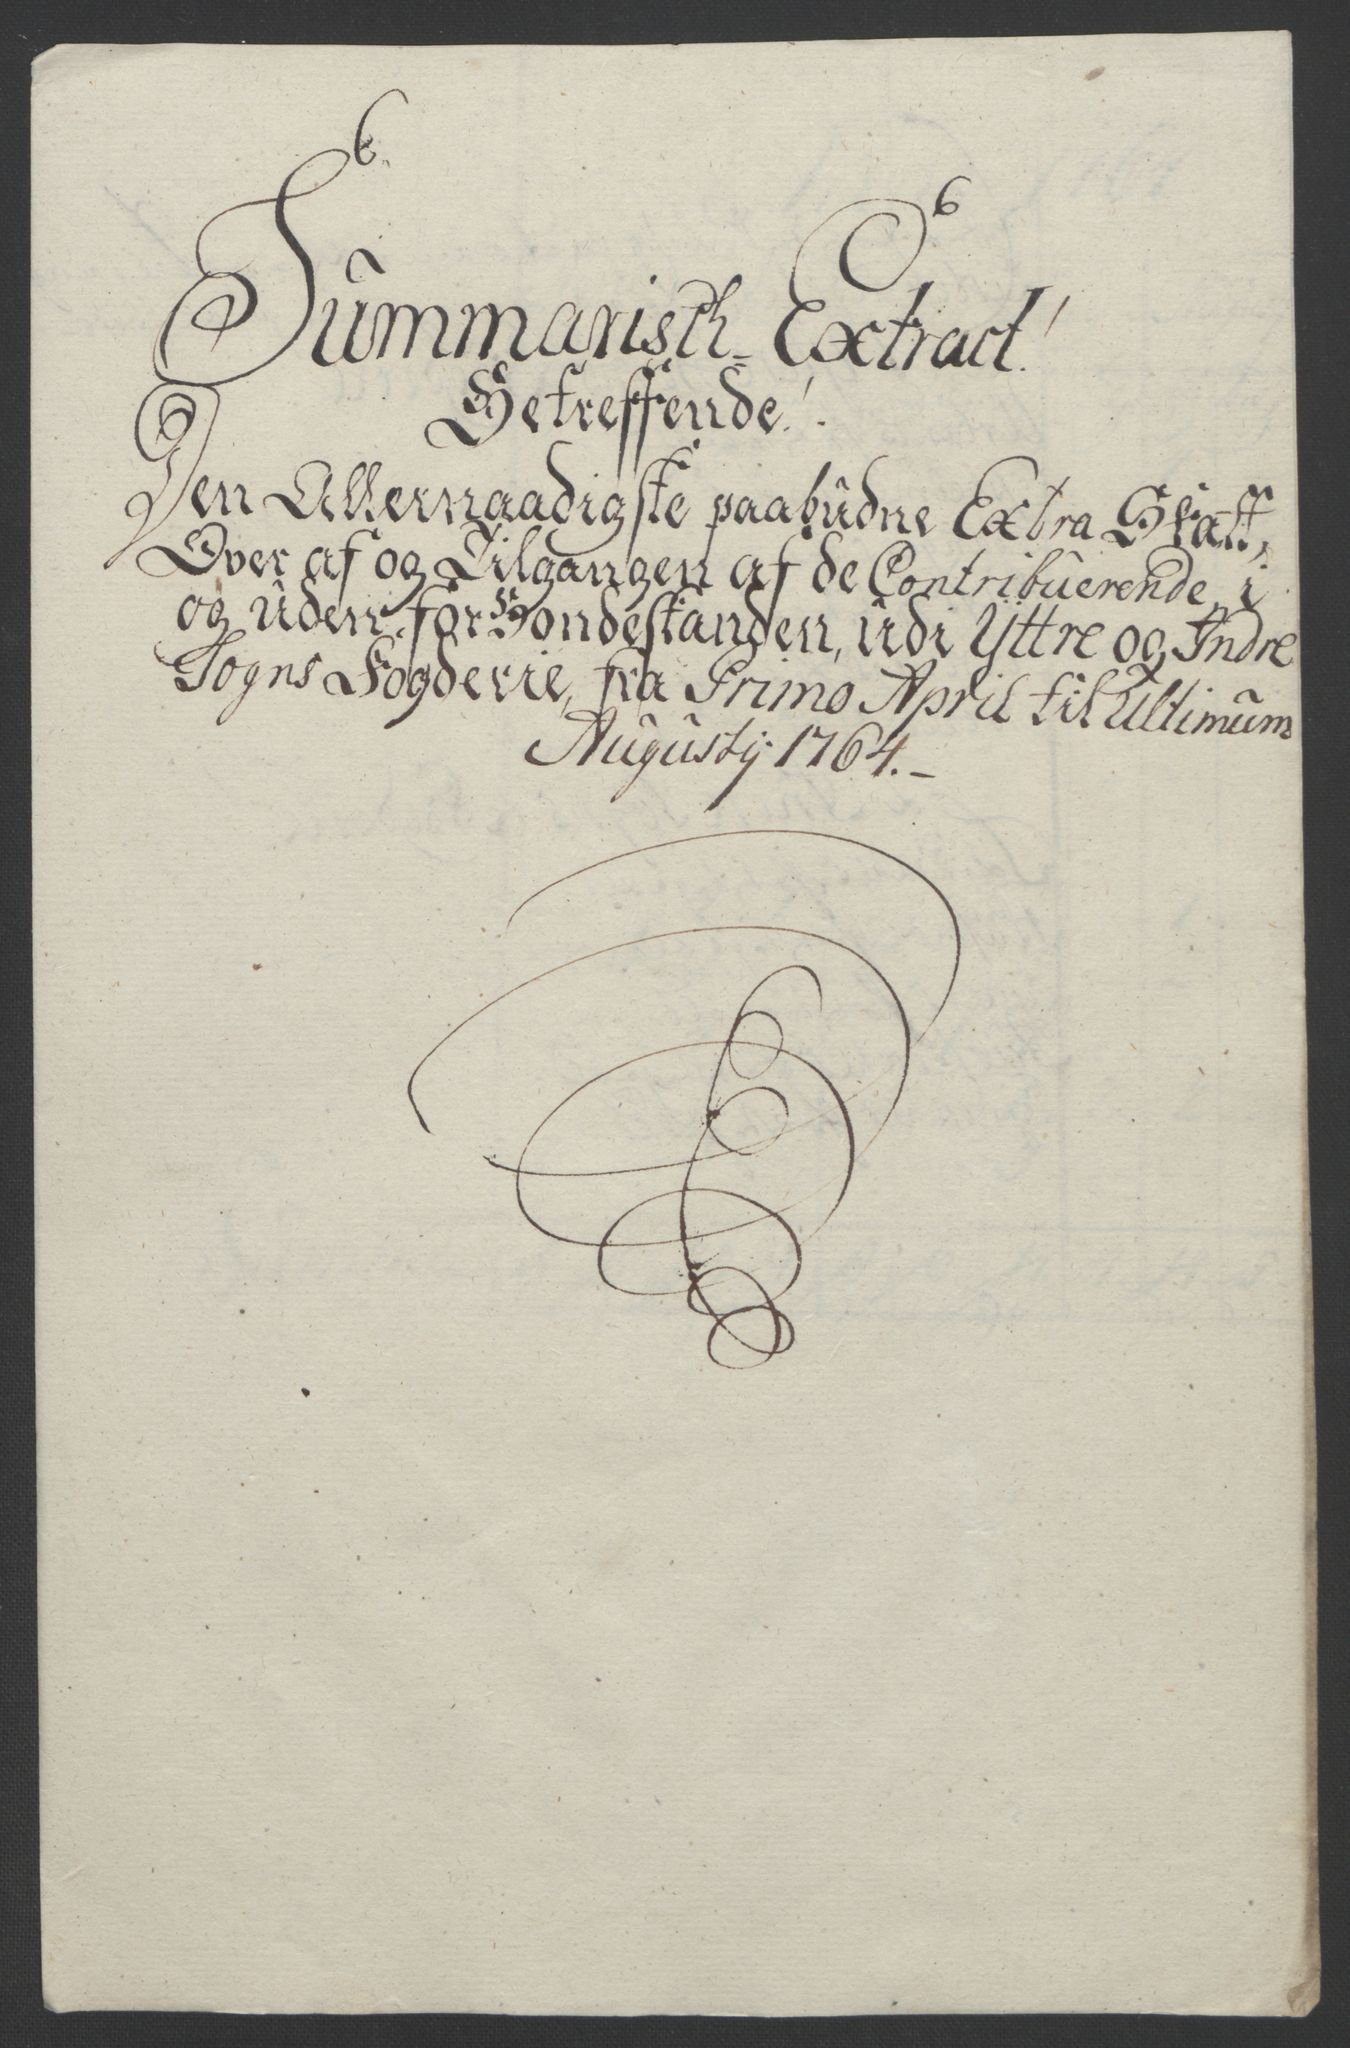 Summarisk Extract!
Betreffende!
Den Allernaadigste paabudne Extra Skatt,
Over af og Tilgangen af de Contribuerende i
og uden for Bondestanden, udi Yttre og Indre
Sogns Fogderie, fra Primo April til Ultimum
Augusty 1764.